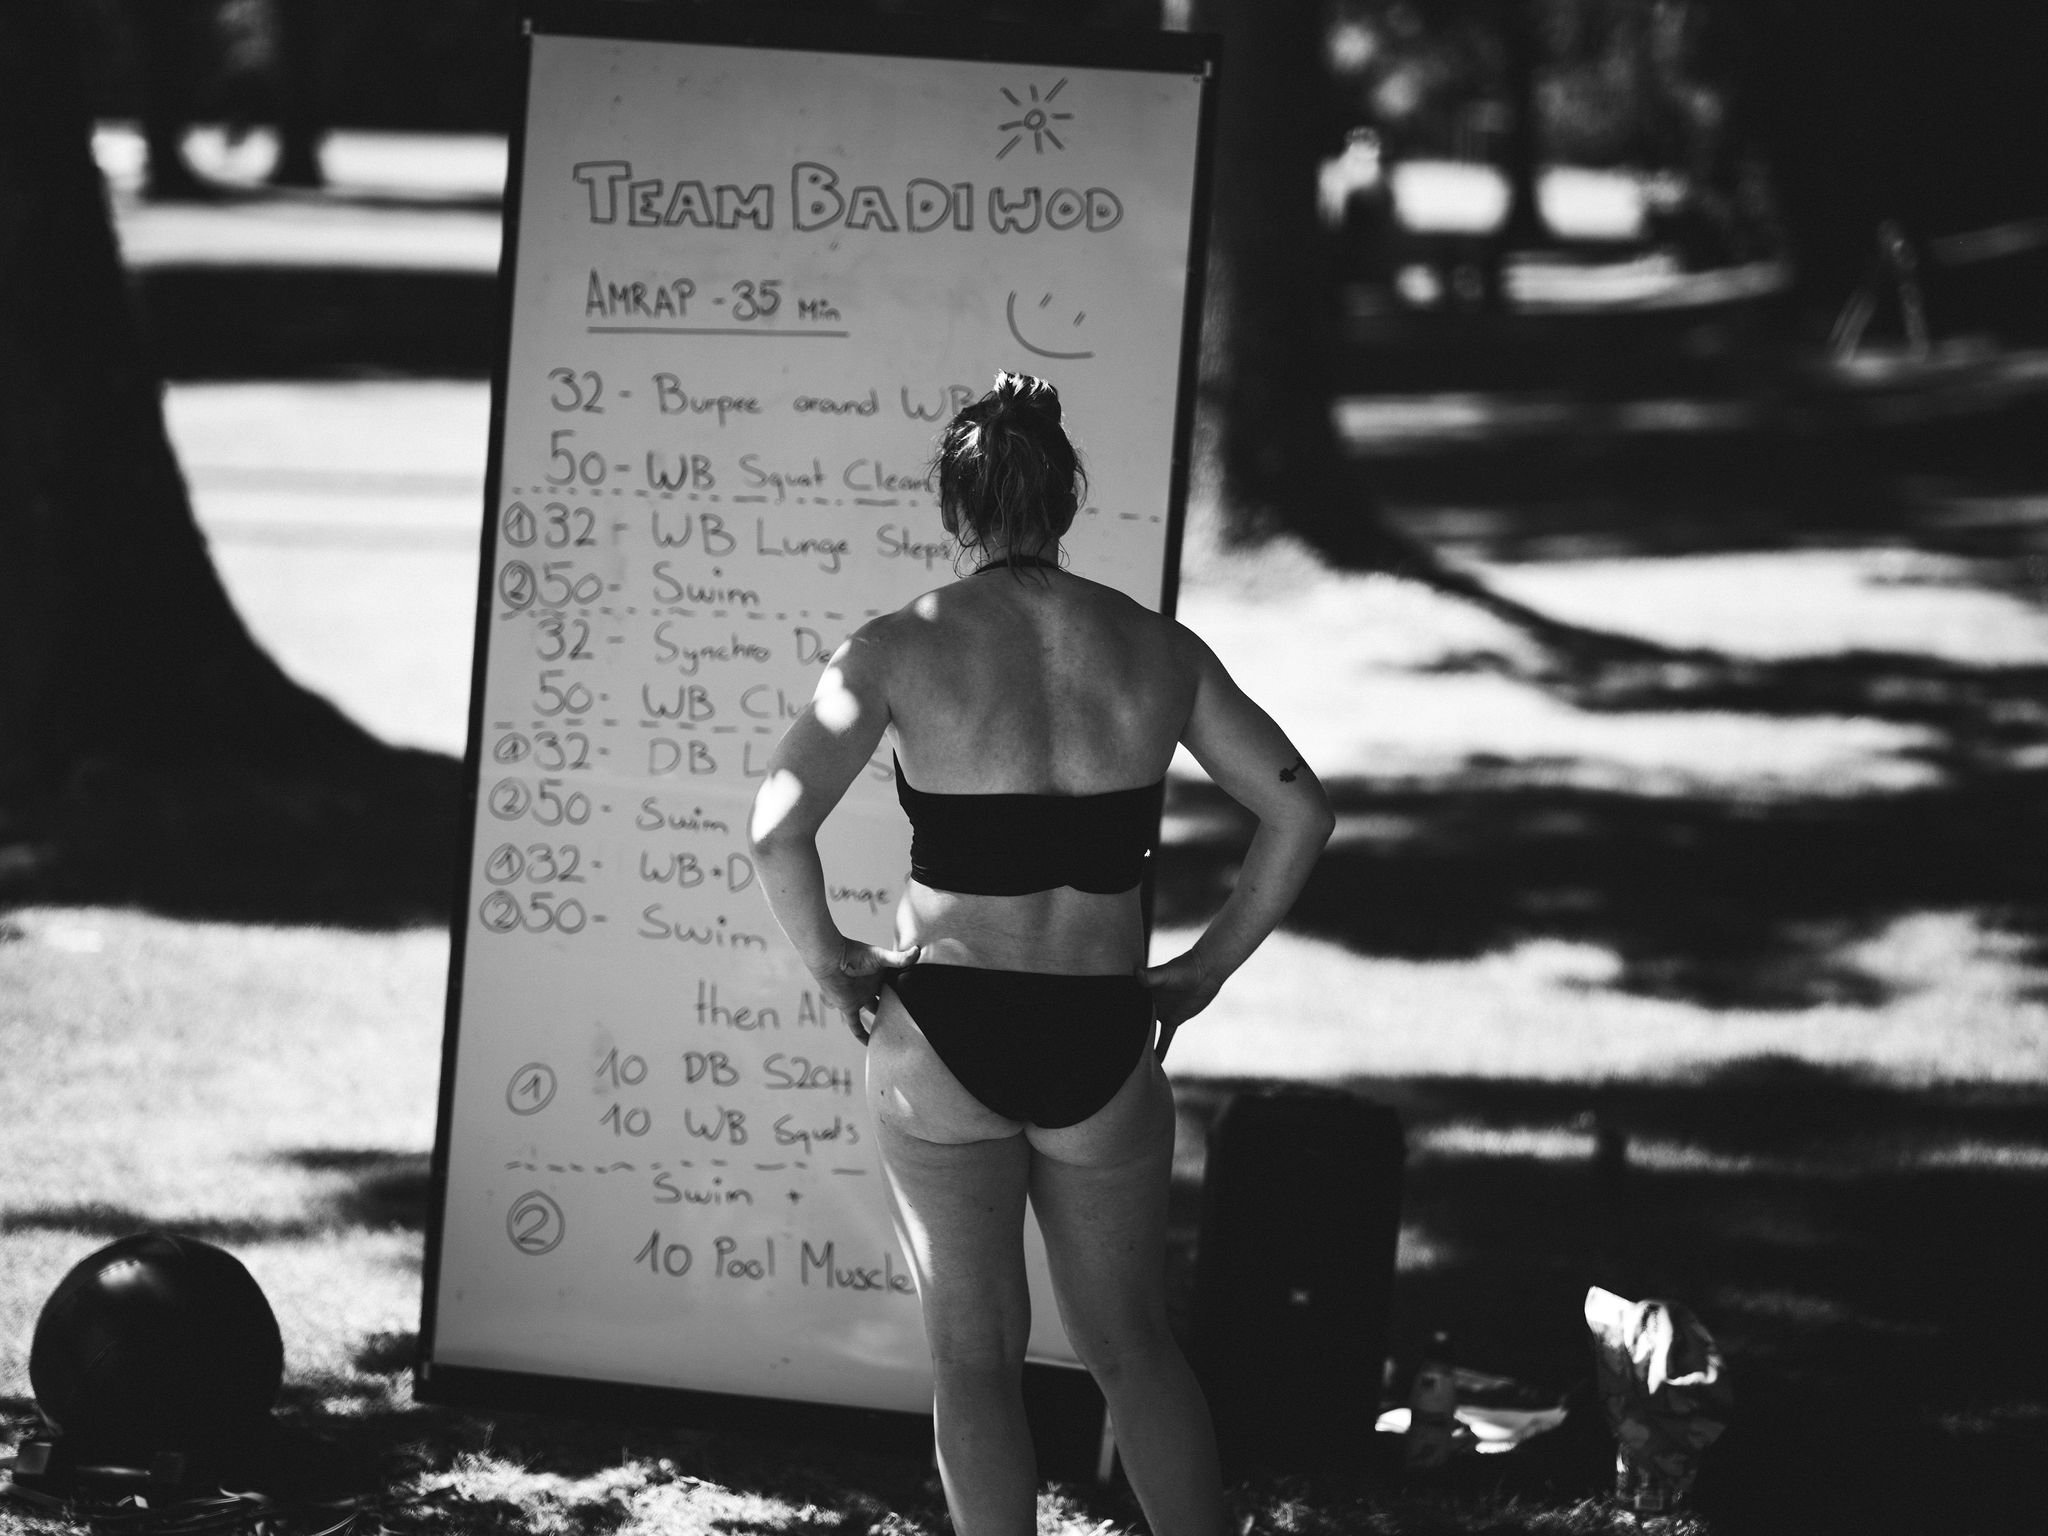 TEAM BADI WOD
AMRAP - 35 Min
32 - Burpee around WB
50 - WB Squat Clean
① 32 - WB Lunge Steps
② 50 - Swim
32 - Synchro
50 - WB
① 32 - DB
② 50 - Swim
① 32 - WB+D unge
② 50 - Swim
then
① 10 DB S2OH
10 WB Squats
② Swim +
10 Pool Muscle